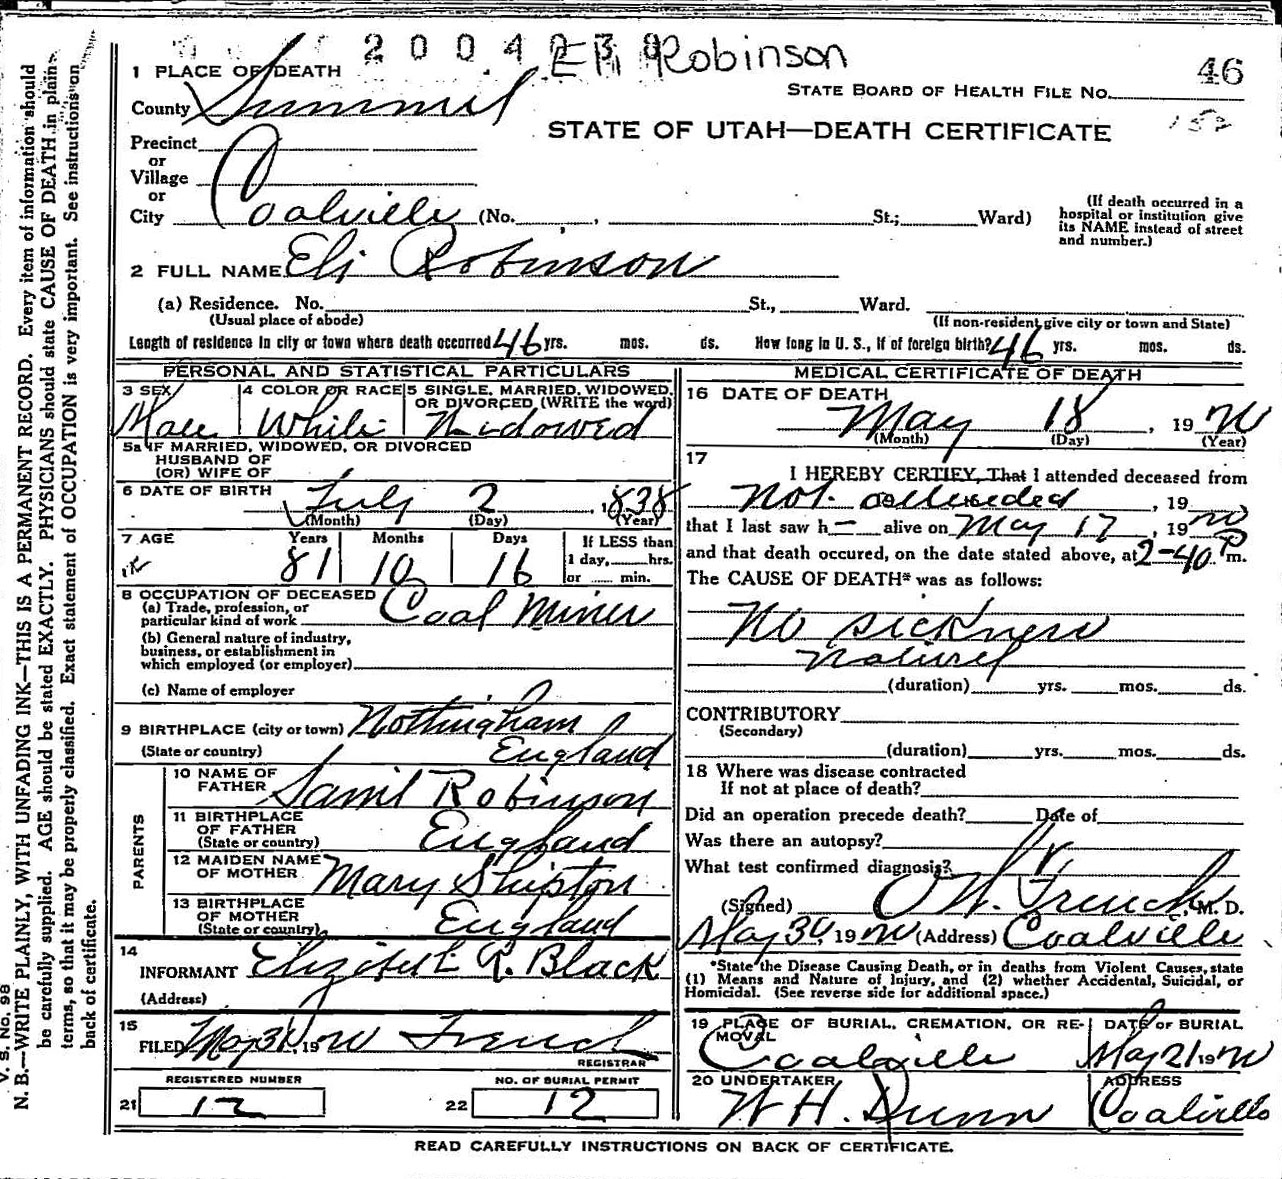 2004230
Eli Robinson
46
1 PLACE OF DEATH
STATE BOARD OF HEALTH FILE No.
County Summit
STATE OF UTAH—DEATH CERTIFICATE
Precinct
or
Village
or
City Coalville (No. , St.; Ward)
(If death occurred in a
hospital or institution give
its NAME instead of street
and number.)
2 FULL NAME Eli Robinson
(a) Residence. No. St., Ward.
(Usual place of abode)
(If non-resident give city or town and State)
Length of residence in city or town where death occurred 46 yrs. mos. ds. How long in U. S., if of foreign birth? 46 yrs. mos. ds.
PERSONAL AND STATISTICAL PARTICULARS
3 SEX
4 COLOR OR RACE
5 SINGLE, MARRIED, WIDOWED,
OR DIVORCED (WRITE the word)
Male White Widowed
5a IF MARRIED, WIDOWED, OR DIVORCED
HUSBAND OF
(OR) WIFE OF
6 DATE OF BIRTH July 2, 1838
(Month) (Day) (Year)
7 AGE Years Months Days If LESS than
1 day, hrs.
81 10 16 or min.
8 OCCUPATION OF DECEASED
(a) Trade, profession, or
particular kind of work Coal Miner
(b) General nature of industry,
business, or establishment in
which employed (or employer)
(c) Name of employer
9 BIRTHPLACE (city or town) Nottingham
(State or country) England
PARENTS
10 NAME OF
FATHER Saml Robinson
11 BIRTHPLACE
OF FATHER England
(State or country)
12 MAIDEN NAME
OF MOTHER Mary Shipton
13 BIRTHPLACE
OF MOTHER England
(State or country)
14
INFORMANT Elizabeth R. Black
(Address)
15
FILED May 31, 1920 French
REGISTRAR
REGISTERED NUMBER NO. OF BURIAL PERMIT
21 12 22 12
MEDICAL CERTIFICATE OF DEATH
16 DATE OF DEATH
May 18, 1920
(Month) (Day) (Year)
17
I HEREBY CERTIFY, That I attended deceased from
Not attended, 19
that I last saw h— alive on May 17, 1920
and that death occured, on the date stated above, at 2-40 P m.
The CAUSE OF DEATH* was as follows:
No sickness
Natural
(duration) yrs. mos. ds.
CONTRIBUTORY
(Secondary)
(duration) yrs. mos. ds.
18 Where was disease contracted
If not at place of death?
Did an operation precede death? Date of
Was there an autopsy?
What test confirmed diagnosis?
(Signed) French, M. D.
May 30, 1920 (Address) Coalville
*State the Disease Causing Death, or in deaths from Violent Causes, state
(1) Means and Nature of Injury, and (2) whether Accidental, Suicidal, or
Homicidal. (See reverse side for additional space.)
19 PLACE OF BURIAL, CREMATION, OR RE-
MOVAL
DATE OF BURIAL
Coalville May 21 1920
20 UNDERTAKER ADDRESS
W H. Dunn Coalville
READ CAREFULLY INSTRUCTIONS ON BACK OF CERTIFICATE.
V. S. No. 98
N. B.—WRITE PLAINLY, WITH UNFADING INK—THIS IS A PERMANENT RECORD. Every item of information should
be carefully supplied. AGE should be stated EXACTLY. PHYSICIANS should state CAUSE OF DEATH in plain
terms, so that it may be properly classified. Exact statement of OCCUPATION is very important. See instructions on
back of certificate.